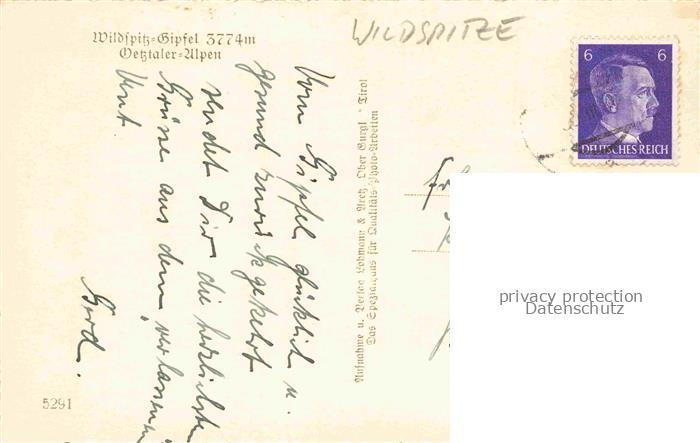 Wildspitz-Gipfel 3774m
Oetztaler-Alpen
WILDSPITZE
6 6
DEUTSCHES REICH
Vom Gipfel glücklich u.
gesund zurückgekehrt
sendet Dir die herzlichsten
Grüsse aus dem "verlassenen
Gerd.
Aufnahme u. Verlag Lohmann & Aretz, Ober Gurgl, Tirol
Das Spezialhaus für Qualitäts-Photo-Arbeiten
5291
privacy protection
Datenschutz